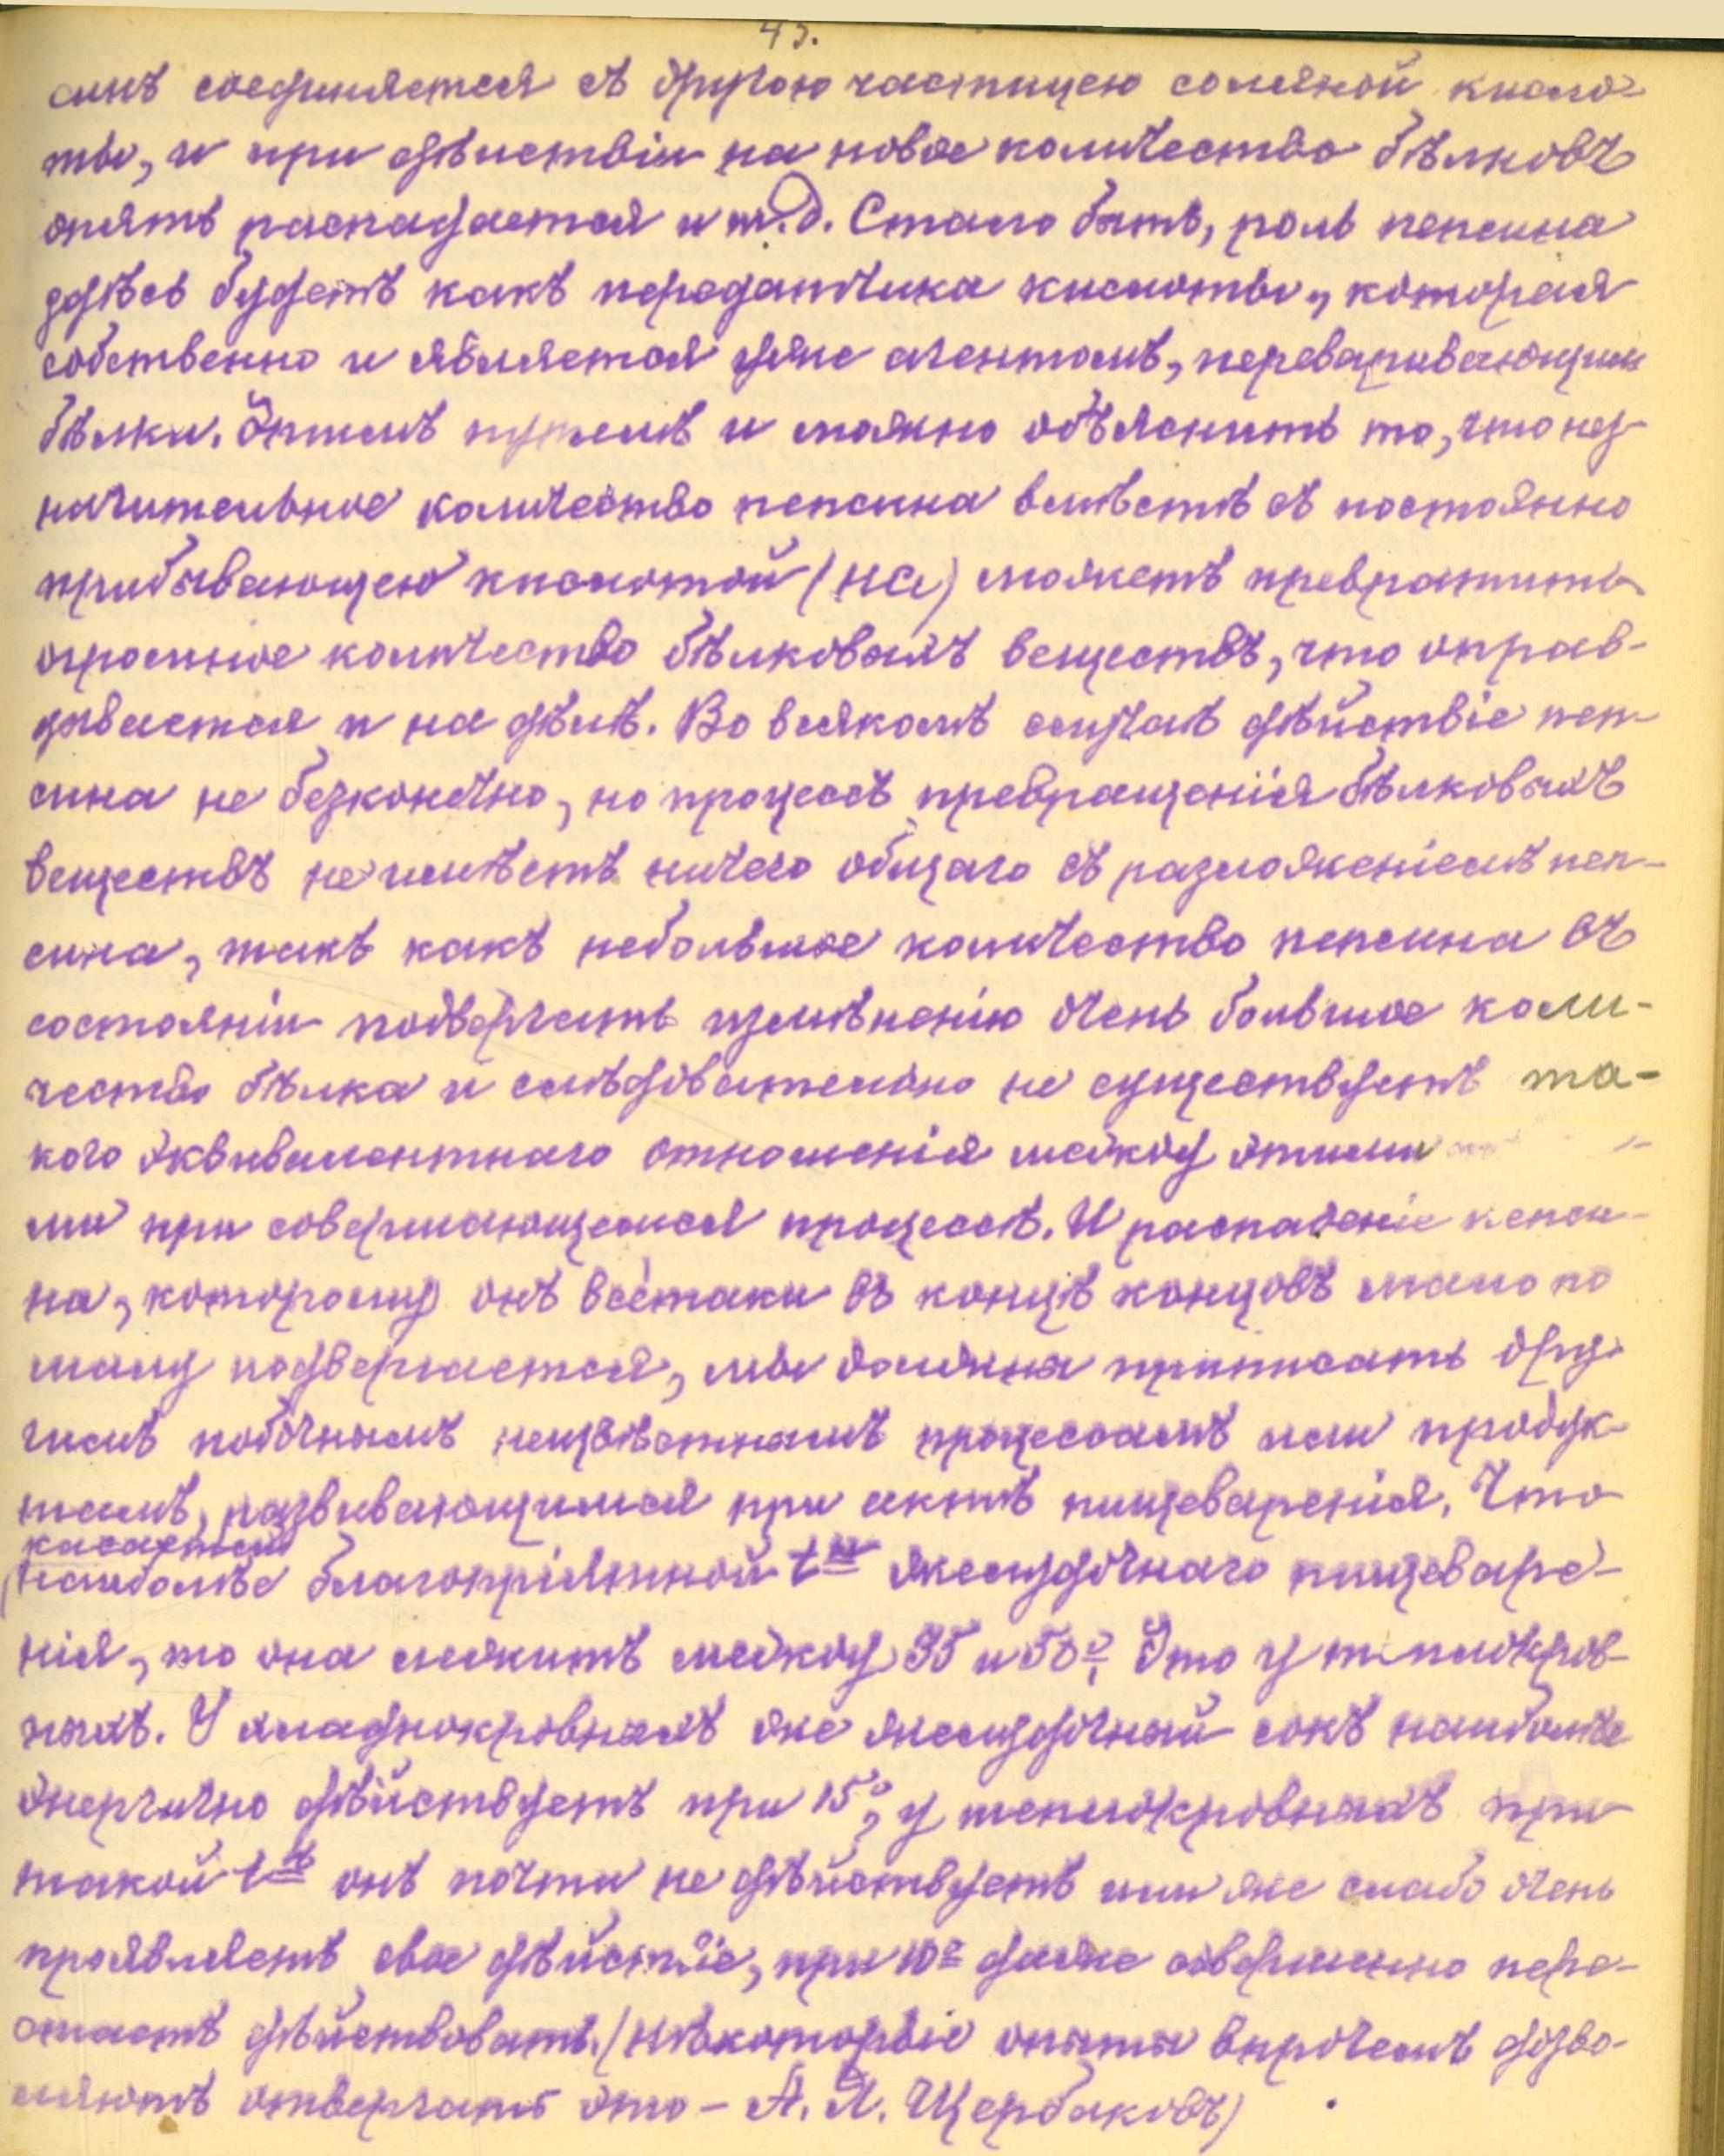 43.
синъ соединяется съ другою частицею соляной кисло-
ты, и при дѣйствіи на новое количество бѣлковъ
опять распадается и т.д. Стало быть, роль пепсина
здѣсь будетъ какъ передатчика кислоты, которая
собственно и является уже агентомъ, переваривающимъ
бѣлки. Этимъ путемъ и можно объяснить то, что нез-
начительное количество пепсина вмѣстѣ съ постоянно
прибывающею кислотой (HCl) можетъ превратить
огромное количество бѣлковыхъ веществъ, что оправ-
дывается и на дѣлѣ. Во всякомъ случаѣ дѣйствіе пеп-
сина не безконечно, но процессъ превращенія бѣлковыхъ
веществъ не имѣетъ ничего общаго съ разложеніемъ пеп-
сина, такъ какъ небольшое количество пепсина въ
состояніи подвергать измѣненію очень большое коли-
чество бѣлка и слѣдовательно не существуетъ та-
кого эквивалентнаго отношенія между этими
ми при совершающемся процессѣ. И распаденіе пепси-
на, которому онъ всетаки въ концѣ концовъ мало по
малу подвергается, мы должны приписать дру-
гимъ побочнымъ неизвѣстнымъ процессамъ или продук-
тамъ, развивающимся при актѣ пищеваренія. Что
касается
наиболѣе благопріятной t-ы желудочнаго пищеваре-
нія, то она лежитъ между 35 и 50°. Это у теплокров-
ныхъ. У хладнокровныхъ же желудочный сокъ наиболѣе
энергично дѣйствуетъ при 15°, у теплокровныхъ при
такой t-ѣ онъ почти не дѣйствуетъ или же слабо очень
проявляетъ свое дѣйствіе, при 10° даже совершенно пере-
стаетъ дѣйствовать. (Нѣкоторые опыты впрочемъ дозво-
ляютъ отвергать это – А. Я. Щербаковъ)